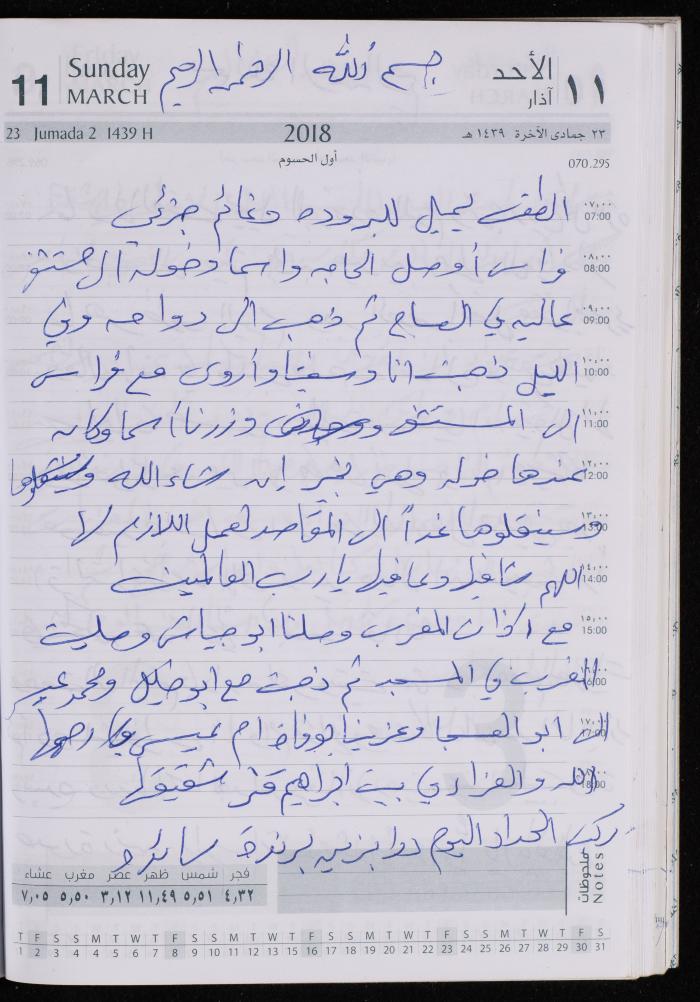 11 Sunday MARCH بسم الله الرحمن الرحيم الأحد آذار ١١
23 Jumada 2 1439 H 2018 ٢٣ جمادى الآخرة ١٤٣٩ هـ
أول الحسوم 070.295
٠٧:٠٠ 07:00 الطقس يميل للبروده وغائم جزئي
٠٨:٠٠ 08:00 فراس أوصل الحاجه واسما وخوله الى مستشفى
٠٩:٠٠ 09:00 عاليه في الصباح ثم ذهب الى دوامه وفي
١٠:٠٠ 10:00 الليل ذهبت انا وأروى مع فراس
١١:٠٠ 11:00 الى المستشفى وزرنا أسما وكان
١٢:٠٠ 12:00 عندها خوله وهي بخير إن شاء الله
١٣:٠٠ 13:00 وسينقلوها غداً الى المقاصد لعمل اللازم لها
١٤:٠٠ 14:00 اللهم شافيها وعافيها يا رب العالمين
١٥:٠٠ 15:00 مع اذان المغرب وصلنا ابو عياش وصليت
١٦:٠٠ 16:00 المغرب في المسجد ثم ذهبت مع ابو خليل ومحمد عمير
١٧:٠٠ 17:00 الى ابو العسجا وعزينا بوفاة ام عيسى رحمها
١٨:٠٠ 18:00 الله والعزاء في بيت ابراهيم شقيقها
ركب الحداد اليوم درابزين برندة سائده
ملحوظات Notes
فجر شمس ظهر عصر مغرب عشاء
٤,٣٢ ٥,٥١ ١١,٤٩ ٣,١٢ ٥,٥٠ ٧,٠٥
T F S S M T W T F S S M T W T F S S M T W T F S S M T W T F S
1 2 3 4 5 6 7 8 9 10 11 12 13 14 15 16 17 18 19 20 21 22 23 24 25 26 27 28 29 30 31